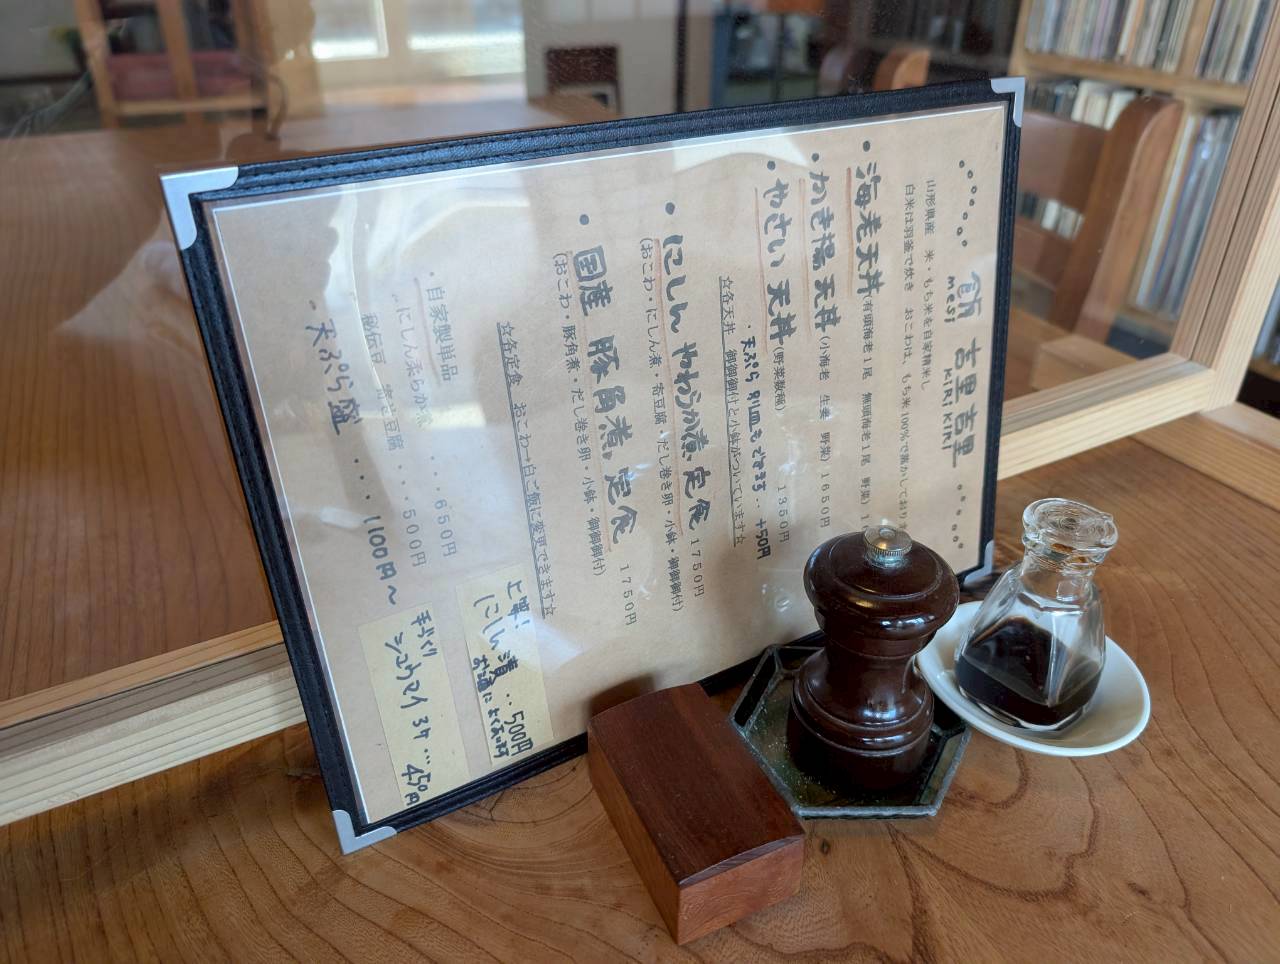 飯 吉里吉里
mesi KIRI KIRI
山形県産 米・もち米を自家精米し
白米は羽釜で炊き おこわは、もち米100%で蒸かしており
・海老天丼(有頭海老1尾 無頭海老1尾 野菜)
・かき揚天丼(小海老 生姜 野菜)1650円
・やさい天丼(野菜数種) 1350円
・天ぷら別皿もできます‥+50円
☆各天丼 御御御付と小鉢がついています☆
・にしんやわらか煮定食 1750円
(おこわ・にしん煮・寄豆腐・だし巻き卵・小鉢・御御御付)
・国産 豚角煮定食 1750円
(おこわ・豚角煮・だし巻き卵・小鉢・御御御付)
☆各定食 おこわ→白ご飯に変更できます☆
・自家製単品
・にしん柔らか煮 ・・・650円
秘伝豆 寄せ豆腐・・・500円
・天ぷら盛 ・・・1100円〜
上等!
にしん漬‥500円
お酒によく合います
手づくり
シュウマイ 3ケ…450円